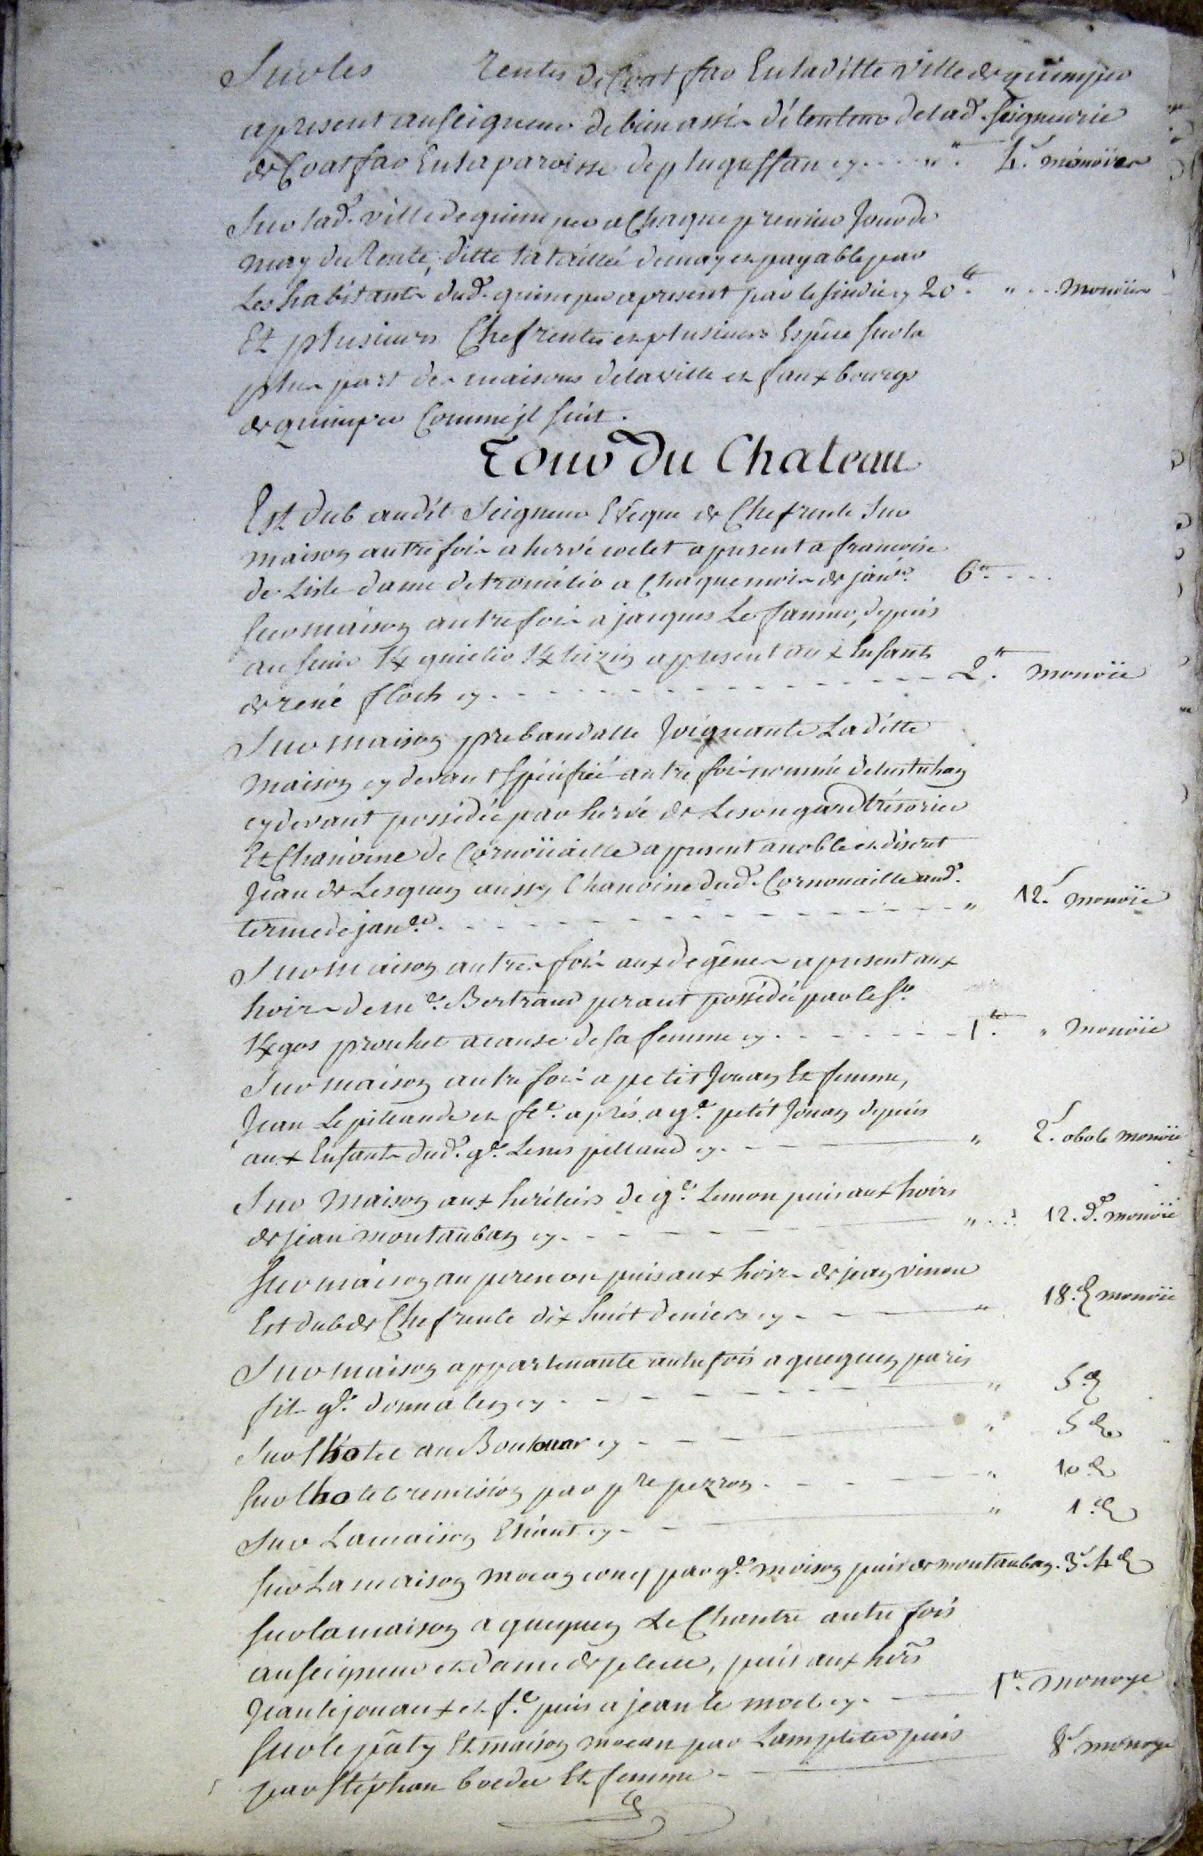 Sur les rentes de Coatfao En laditte ville de quimper
apresent au seigneur de bien assis détenteur de lad.e seigneurie
de Coatfao En la paroisse de pluguffan cy . . . " . 4.s monoïee
Sur lad.e ville de quimper a Chaque premier Jour de
may de Rente, ditte la taillée de may et payable par
Les habitants dud. quimper apresent par le sindic cy 20.tt " . . monoïe
Et plusieurs Chefrentes et plusieurs Espece sur la
plus part des maisons de la ville et faux bourgs
de quimper Comme jl suit .
Tour Du Chateau
Est dub audit Seigneur Evêque de Chefrente Sur
maison autrefois a hervé apresent a francoise
de Lisle dame de a Chaque mois de janv.er 6.tt . . .
Sur maison autrefois a jacques Le depuis
au sieur apresent aux Enfants
de rené floch cy . - - - - - - - - 2.tt monoïe
Sur maison prebandalle Joignante Laditte
Maison cy devant spécifiée autrefois nommée
cy devant possédée par hervé de Lesongard trésorier
Et Chanoine de Cornoüaille apresent a noble et discret
Jean de Lesguen aussy Chanoine dud. Cornouaille aud.
terme de janv.er . - - - - - - - - " 12.s monoïe
Sur maison autres fois aux apresent aux
hoirs de m.e Bertrand possédée par le s.r
prouhet a cause de sa femme cy . - - - - 1.tt " monoïe
Sur maison autre fois a petit Jouan Et femme,
Jean Le et f.e après a g.e petit Jouan depuis
aux Enfants dud. g.e cy - - " 2.s obole monoïe
Sur Maison aux héritiers de g.e Lemon puis aux hoirs
de jean montauban cy . - - - - " . . 12.d monoïe
Sur maison au puis aux hoirs de jean
Est dub de Chefrente dix huit deniers cy - - " 18.d monoïe
Sur maison appartenante autrefois a gueguen paris
fils g.e cy . - - - - " 5.d
Sur l'hotel au cy - - " 5.d
Sur l'hotel par p.re pezron . - - " 10.d
Sur La maison cy - - " 1.d
Sur La maison par g.e moison puis de montauban . 3.s 4.d
Sur la maison a gueguen Le Chantre autre fois
au seigneur et dame de , puis aux hoirs
Jean le et f.e puis a jean le cy . - 1.tt monoye
Sur le Et maison par puis
par Stéphan Et femme - - 8.s monoye